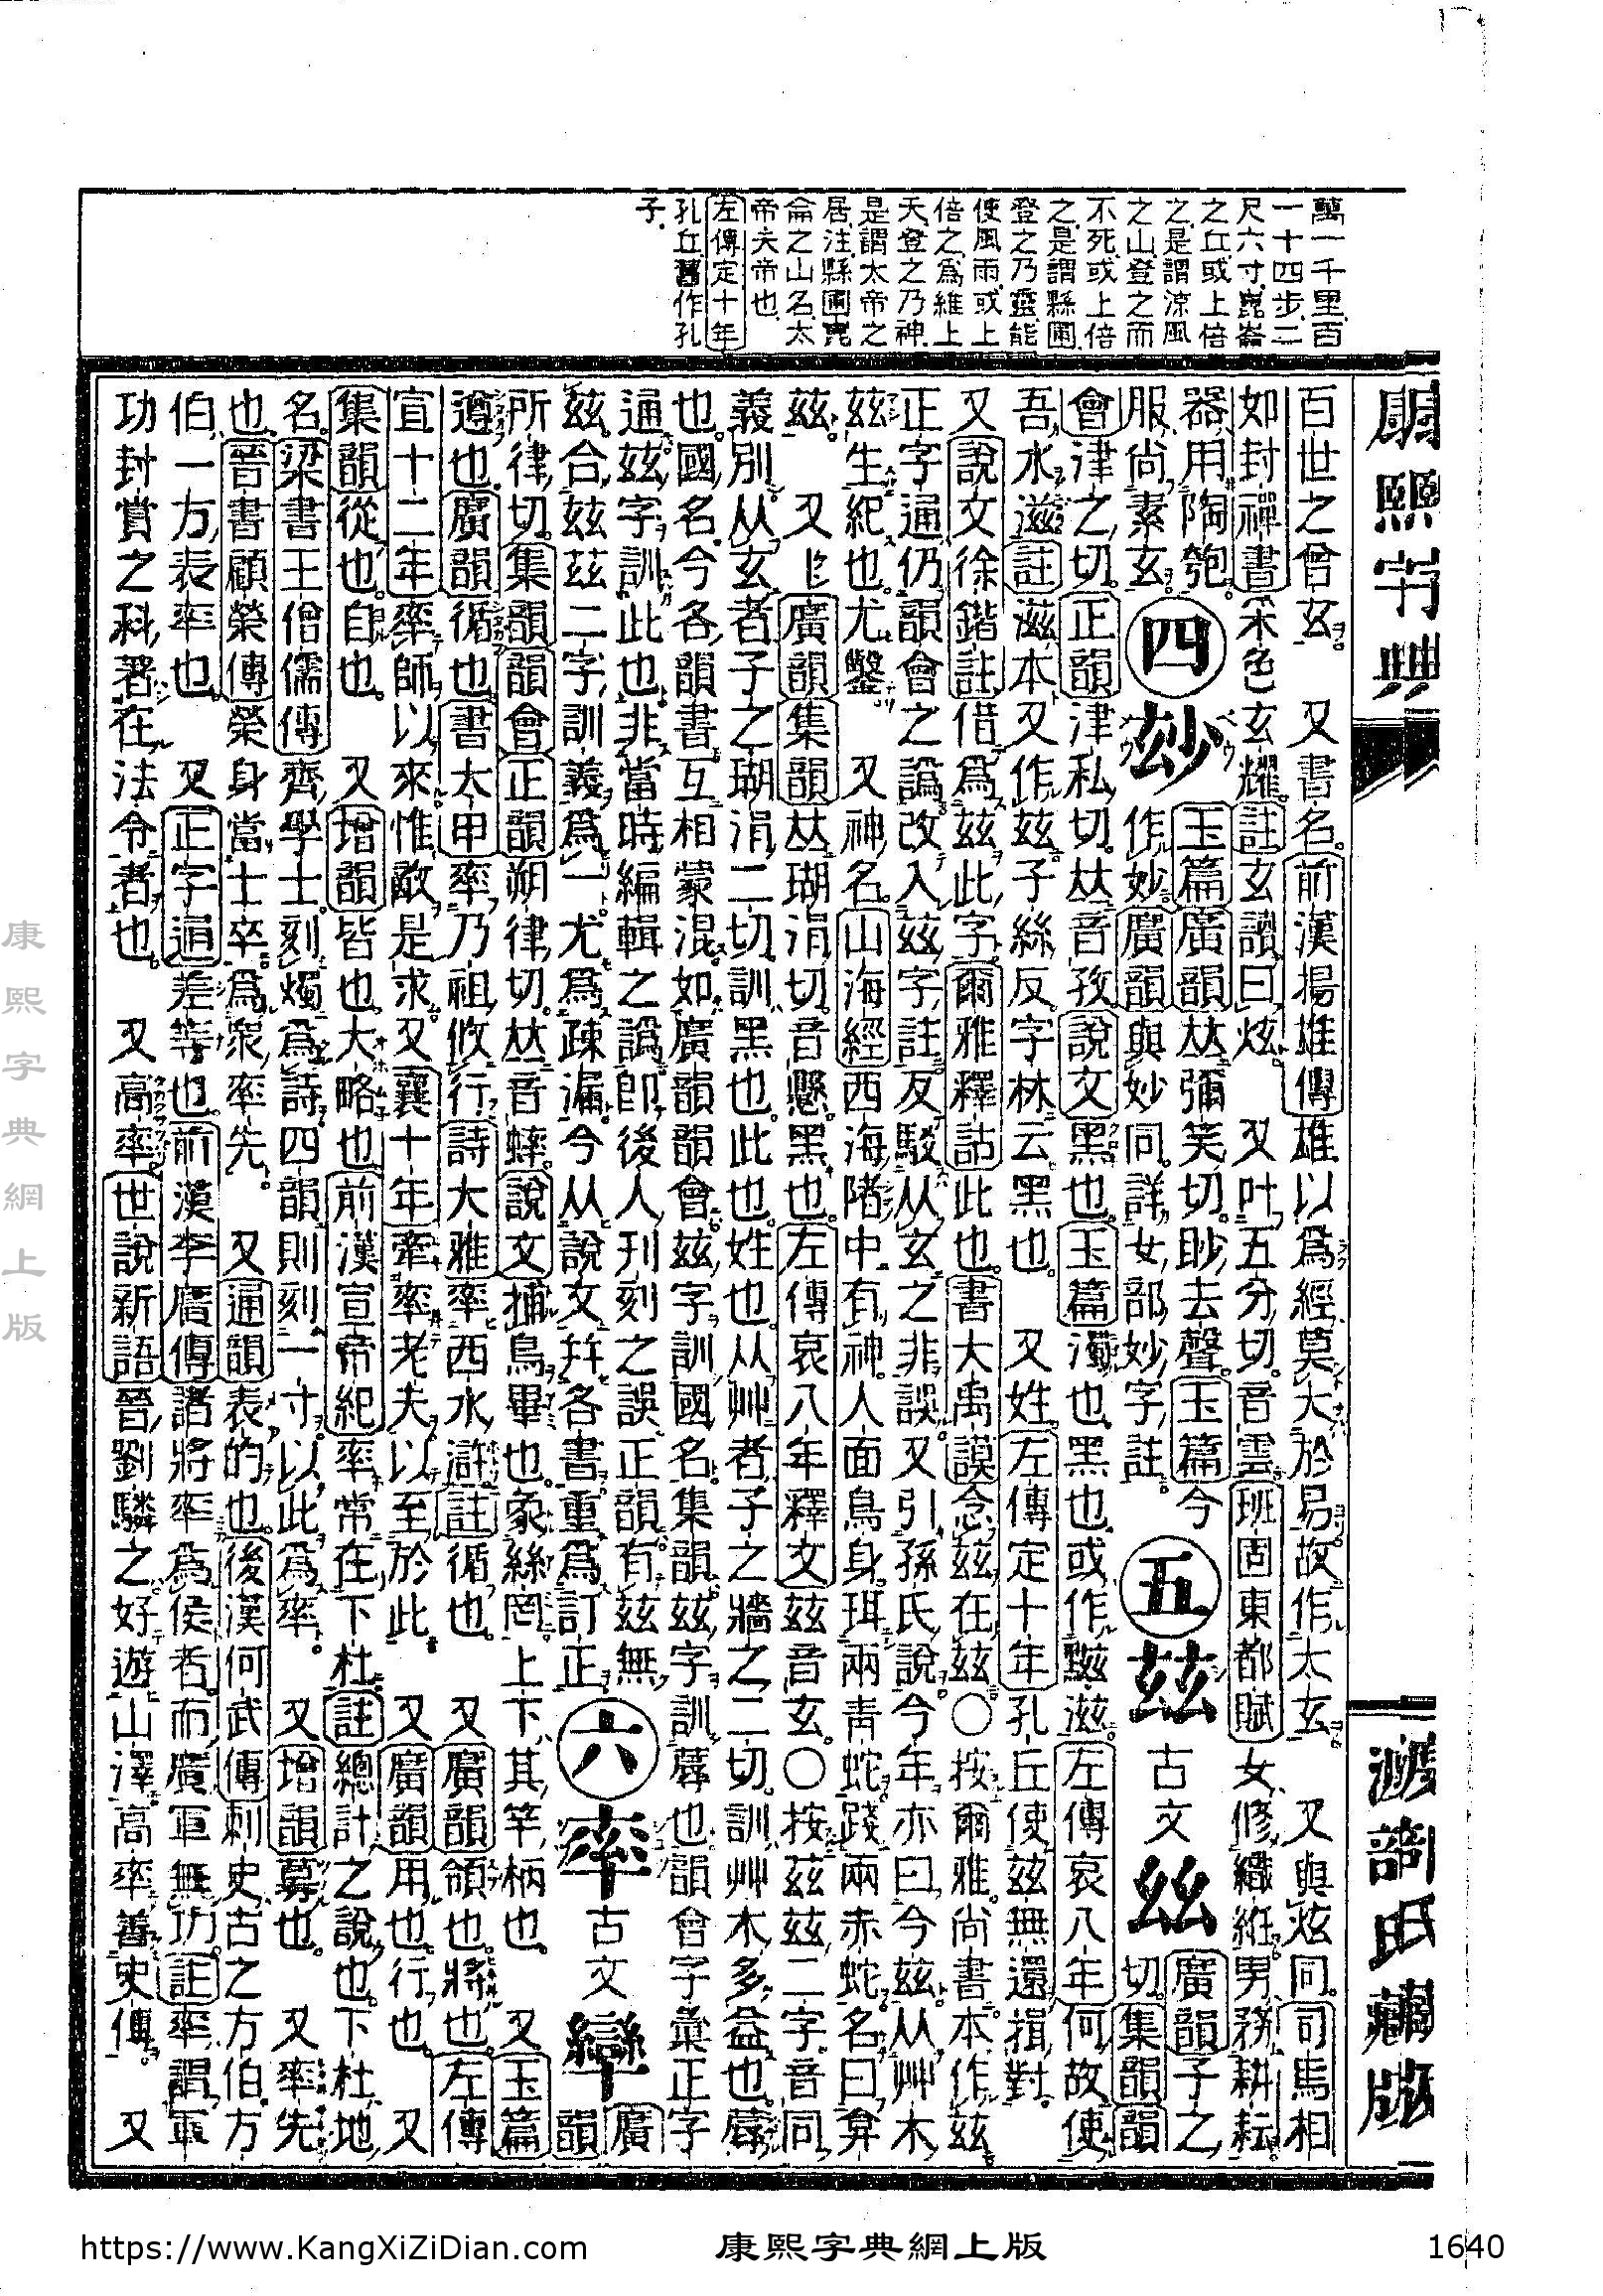 萬一千里百
一十四步二
尺六寸崑崙
之丘或上倍
之是謂涼風
之山登之而
不死或上倍
之是謂縣圃
登之乃靈能
使風雨或上
倍之爲維上
天登之乃神
是謂太帝之
居注縣圃崑
侖之山名太
帝夫帝也
左傳定十年
孔丘舊作孔
子
康熙字典
渡部氏藏版
百世之曾玄。又書名。前漢揚雄傳雄以爲經莫大於易故作太玄。又與炫同。司馬相
如封禪書采色玄耀。註玄讀曰炫。又叶五分切。音雲班固東都賦女修織紝男務耕耘
器用陶匏
服尚素玄。四玅玉篇廣韻𠀤彌笑切。眇去聲。玉篇今
作妙。廣韻與妙同。詳女部妙字註。五茲古文𢆶廣韻子之
切集韻韻
會津之切。正韻津私切。𠀤音孜說文黑也。玉篇濁也黑也。或作黮滋。左傳哀八年何故使
吾水滋註滋本又作茲子絲反字林云黑也。又姓。左傳定十年孔丘使茲無還揖對
又說文徐鍇註借爲茲此字。爾雅釋詁此也。書大禹謨念茲在茲。○按爾雅尚書本作茲
正字通仍韻會之譌改入茲字註反駁从玄之非誤。又引孫氏說今年亦曰今茲。从艸木
茲生紀也。尤鑿。又神名。山海經西海陼中有神人面鳥身珥兩靑蛇踐兩赤蛇名曰弇
茲。又𠀤廣韻集韻𠀤瑚涓切。音懸。黑也。左傳哀八年釋文茲音玄。○按茲茲二字音同
義別。从玄者子之瑚涓二切訓黑也。此也。姓也。从艸者子之牆之二切訓艸木多益也。蓐
也。國名。今各韻書互相蒙混。如廣韻韻會茲字訓國名。集韻茲字訓蓐也韻會字彙正字
通茲字訓此也。非當時編輯之譌卽後人刊刻之誤。正韻有茲無
茲合茲茲二字訓義爲一尤爲疎漏。今从說文幷各書重爲訂正。六率古文𤔎廣韻
所律切。集韻韻會正韻朔律切。𠀤音蟀。說文捕鳥畢也。象絲罔。上下其竿柄也。又玉篇
遵也。廣韻循也。書太甲率乃祖攸行。詩大雅率西水滸註循也。又廣韻領也。將也。左傳
宣十二年率師以來惟敵是求。又襄十年牽率老夫以至於此。又廣韻用也。行也。又
集韻從也。自也。又增韻皆也。大略也前漢宣帝紀率常在下杜註總計之說也。下杜地
名。梁書王僧儒傳齊學士刻燭爲詩四韻則刻一寸。以此爲率。又增韻募也。又率先
也。晉書顧榮傳榮身當士卒爲衆率先。又通韻表的也。後漢何武傳刺史古之方伯。方
伯一方表率也。又正字通差等也。前漢李廣傳諸將率爲侯者。而廣軍無功。註率謂軍
功封賞之科著在法令者也。又高率。世說新語晉劉驎之好遊山澤高率善史傳。又
康熙字典網上版
https://www.KangXiZiDian.com
康熙字典網上版
1640